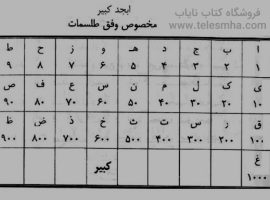 فروشگاه کتاب نایاب
www.telesmha.com
ابجد کبیر
مخصوص وفق طلسمات
ا ب ج د هـ و ز ح ط
۱ ۲ ۳ ۴ ۵ ۶ ۷ ۸ ۹
ی ک ل م ن س ع ف ص
۱۰ ۲۰ ۳۰ ۴۰ ۵۰ ۶۰ ۷۰ ۸۰ ۹۰
ق ر ش ت ث خ ذ ض ظ
۱۰۰ ۲۰۰ ۳۰۰ ۴۰۰ ۵۰۰ ۶۰۰ ۷۰۰ ۸۰۰ ۹۰۰
غ کبیر
۱۰۰۰